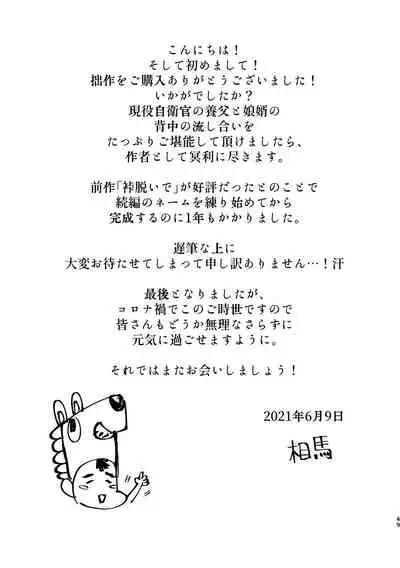 こんにちは！
そして初めまして！
拙作をご購入ありがとうございました！
いかがでしたか？
現役自衛官の養父と娘婿の
背中の流し合いを
たっぷりご堪能して頂けましたら、
作者として冥利に尽きます。
前作「裃脱いで」が好評だったとのことで
続編のネームを練り始めてから
完成するのに1年もかかりました。
遅筆な上に
大変お待たせしてしまって申し訳ありません…！汗
最後となりましたが、
コロナ禍でこのご時世ですので
皆さんもどうか無理なさらずに
元気に過ごせますように。
それではまたお会いしましょう！
2021年6月9日
相馬